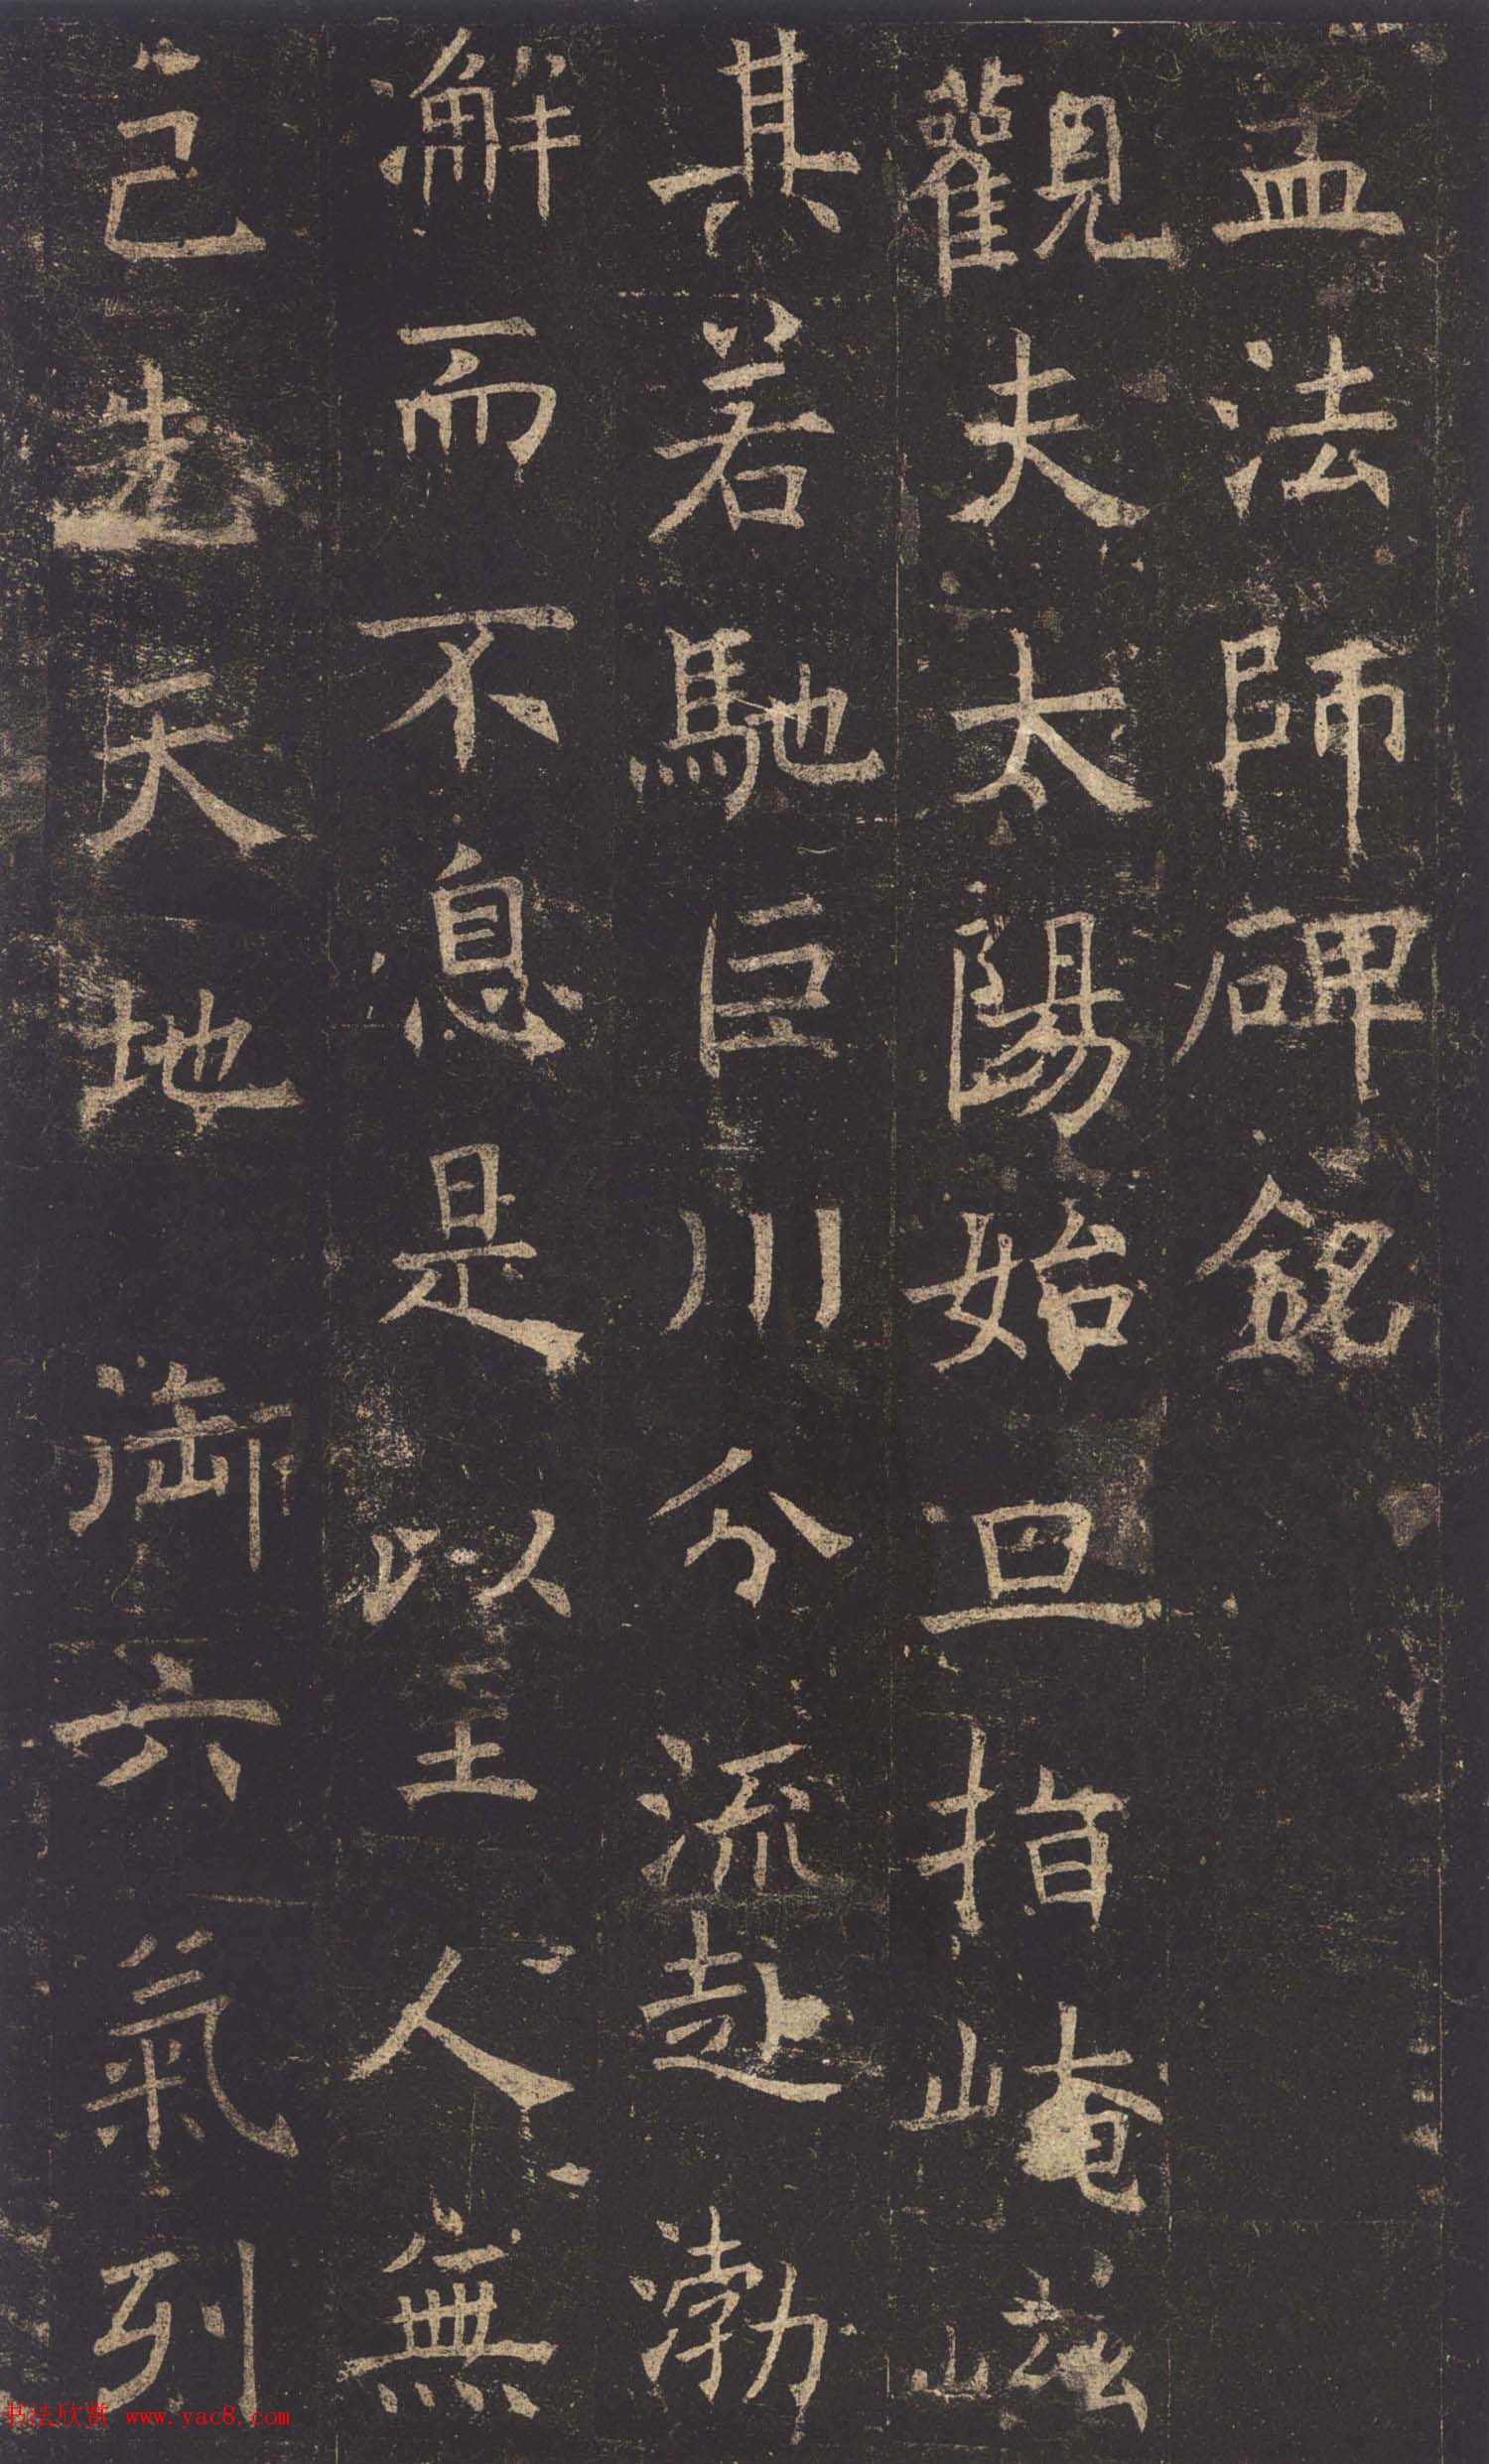 孟法師碑銘
觀夫太陽始旦指崦嵫
其若馳巨川分流赴渤
澥而不息是以至人無
己先天地御六氣列
书法欣赏 www.yac8.com